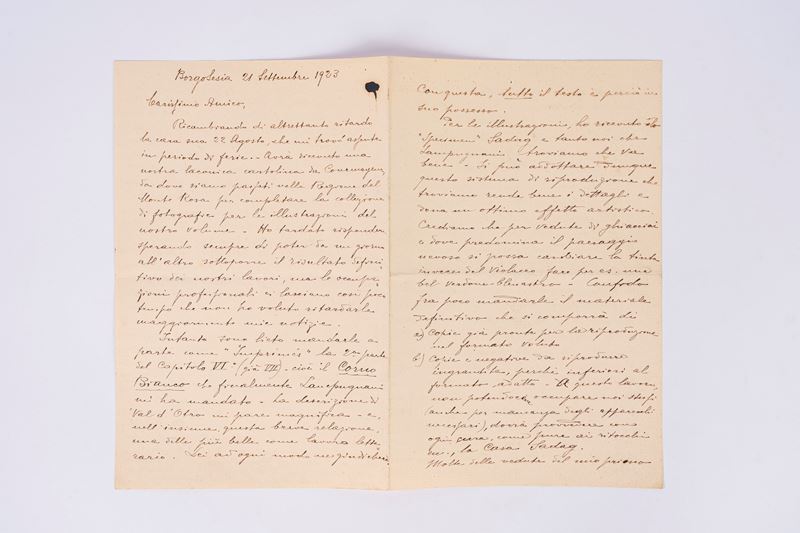 Borgosesia 21 Settembre 1923
Carissimo Amico,
Ricambiando di altrettanto ritardo
la cara sua 22 Agosto, che mi trovò appunto
in periodo di ferie. - Avrà ricevuto una
nostra laconica cartolina da Courmayeur,
da dove siamo passati nella Regione del
Monte Rosa per completare la collezione
di fotografie per le illustrazioni del
nostro volume. - Ho tardato rispondere
sperando sempre di poter da un giorno
all'altro sottoporre il risultato defini
tivo dei nostri lavori, ma le occupa
zioni professionali ci lasciano così poco
tempo che non ho voluto ritardarle
maggiormente mie notizie.
Intanto sono lieto mandarle a
parte come "Imprimés" la 2a parte
del Capitolo VI° (già VII) - cioè il Corno
Bianco che finalmente Lampugnani
mi ha mandato - La descrizione di
Val d'Otro mi pare magnifica - e,
nell'insieme, questa breve relazione,
una delle più belle come lavoro lette
rario. Lei ad ogni modo ne giudicherà
Con questa, tutto il testo è perciò in
suo possesso.
Per le illustrazioni, ho ricevuto
"Specimen" Sadag e tanto noi che
Lampugnani troviamo che va
bene - Si può adottare dunque
questo sistema di riproduzione che
troviamo rende bene i dettagli e
dona un ottimo effetto artistico.
Crediamo che per vedute di ghiacciai
e dove predomina il paesaggio
nevoso si possa cambiare la tinta
invece del Violaceo fare per es. un
bel verdone bluastro - Confido
fra poco mandarle il materiale
definitivo che si comporrà di
a) Copie già pronte per la riproduzione
nel formato voluto
b) Copie e negative da riprodurre
ingrandite, perchè inferiori al
formato adatto - A questo lavoro,
non potendo occupare noi stessi
(anche per mancanza degli apparecchi
necessari), dovrà provvedere con
ogni cura, come pure ai ritocchi
la Casa Sadag.
Molte delle vedute del mio primo